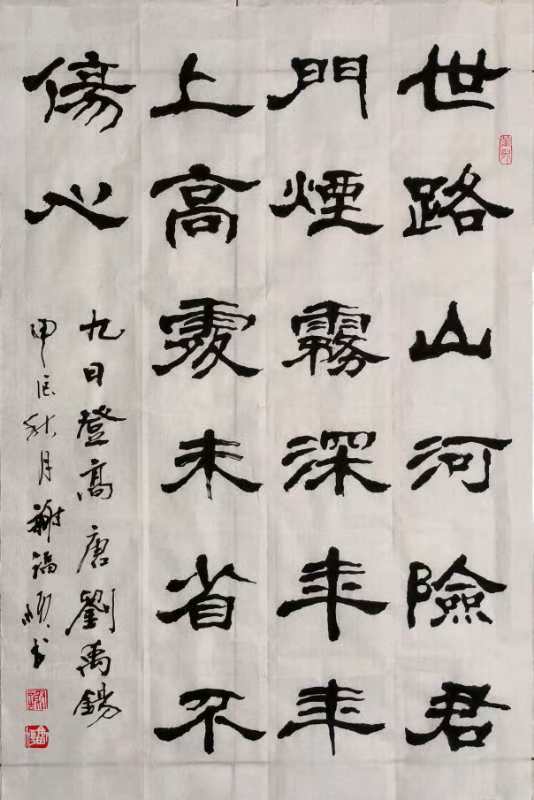 世路山河險君
門煙霧深年年
上高處未省不
傷心
九日登高唐劉禹錫
甲辰秋月謝福书